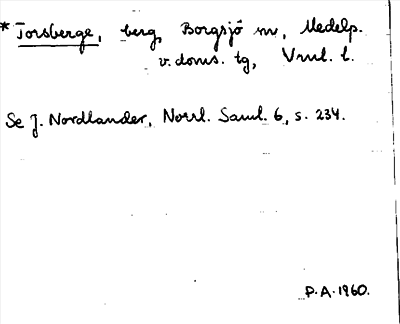 * Torsberge, berg, Borgsjö sn, Medelp.
v. doms. tg, Vrnl. l.
Se J. Nordlander, Norrl. Saml. 6, s. 234.
P.A. 1960.